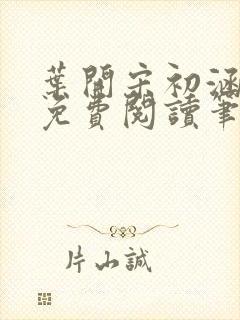 葉開宋初涵
免費閱讀筆
片山誠